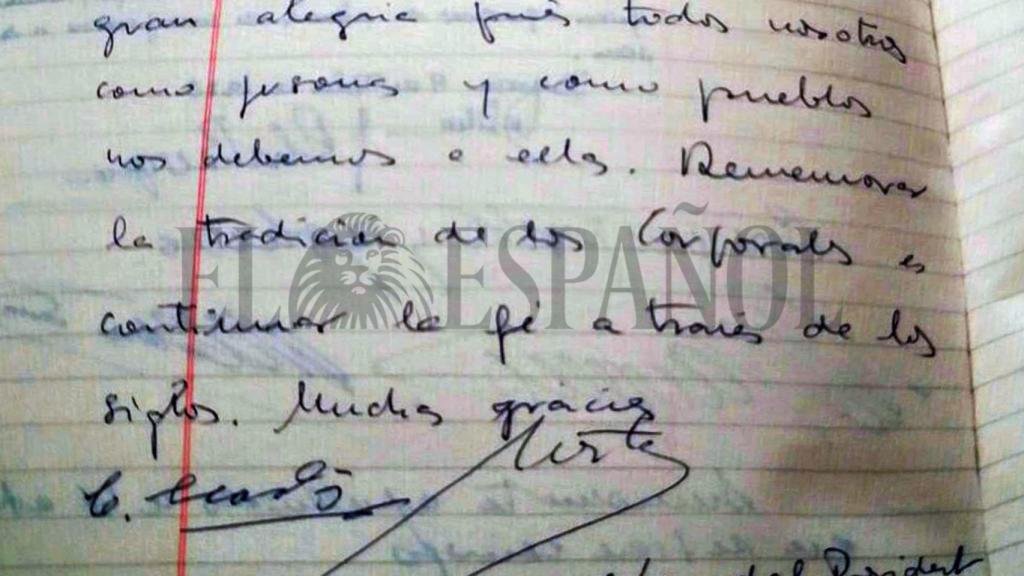 gran alegria pués todos nosotros
como personas y como pueblos
nos debemos a ella. Rememorar
la tradición de los Corporales es
continuar la fé a través de los
siglos. Muchas gracias
EL ESPAÑOL
del President